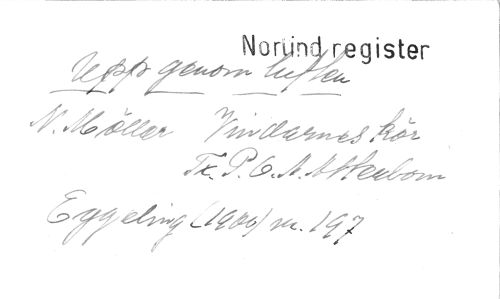 Norlind register
Upp genom luften
N. Möller Vindarnes kör
Tx. P. D. A. Atterbom
Eggeling (1906) nr. 197